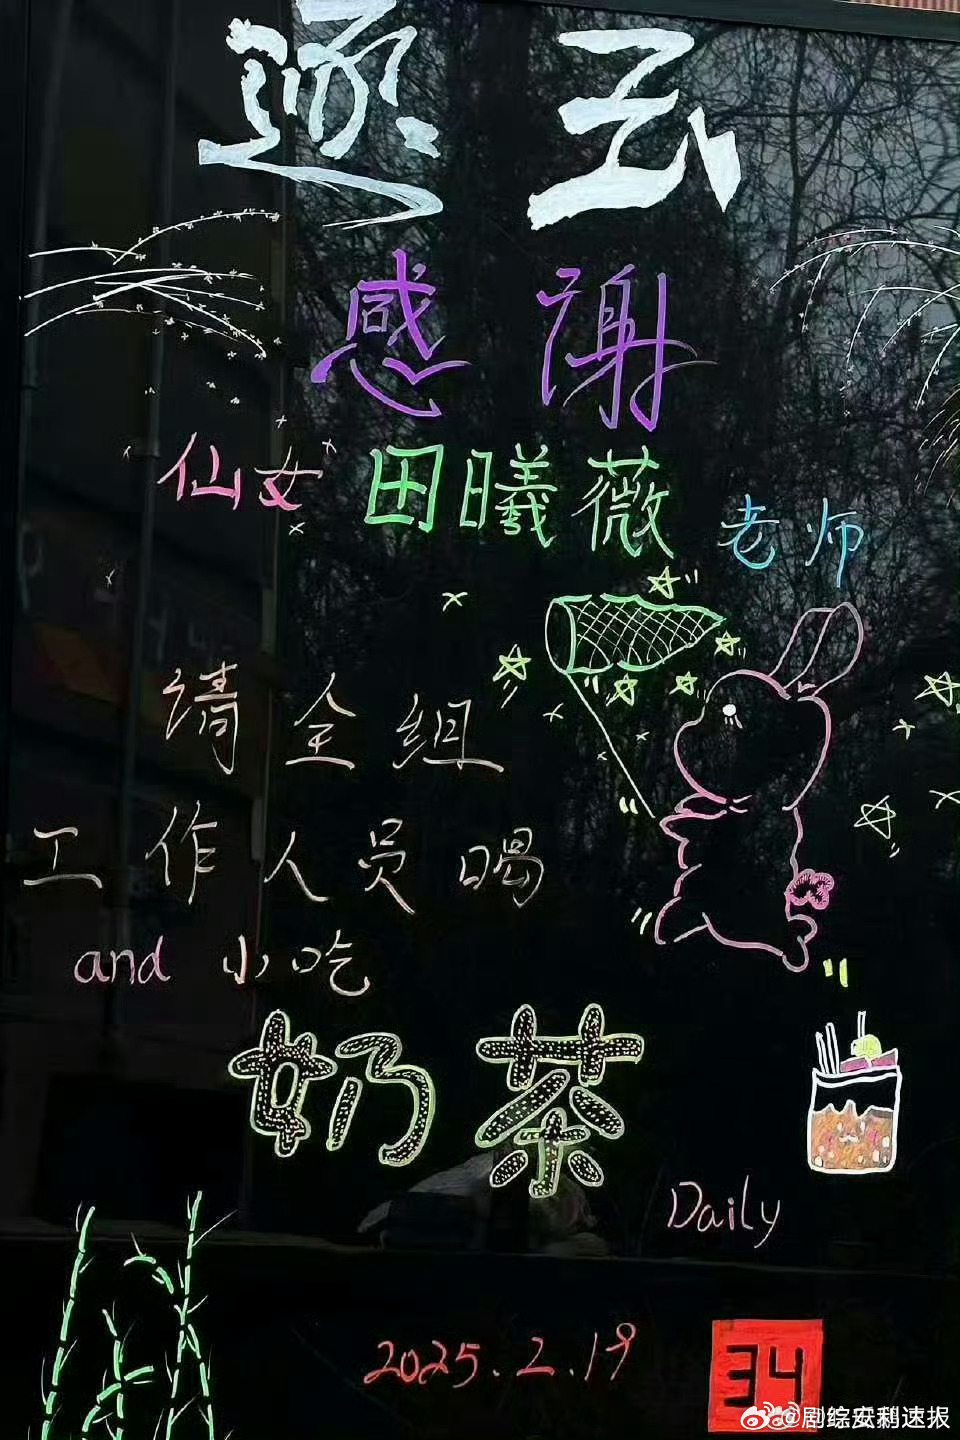 逐云
感谢
仙女 田曦薇 老师
请全组
工作人员喝
and 小吃
奶茶
Daily
2025.2.19
34
@剧综安利速报